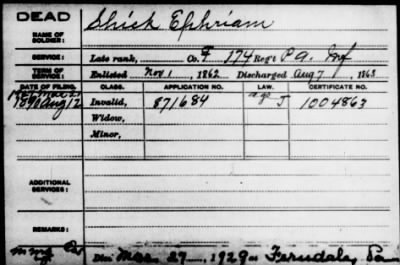 DEAD
NAME OF SOLDIER:
Shick Ephriam
SERVICE:
Late rank, Co. F 174 Reg't Pa. Inf
TERM OF SERVICE:
Enlisted Nov 1, 1862 Discharged Aug 7, 1863
DATE OF FILING. CLASS. APPLICATION NO. LAW. CERTIFICATE NO.
1890 Aug 12 Invalid, 871684 J 1004863
Widow,
Minor,
ADDITIONAL SERVICES:
REMARKS:
Died Mar. 27, 1929 at Ferndale, Pa